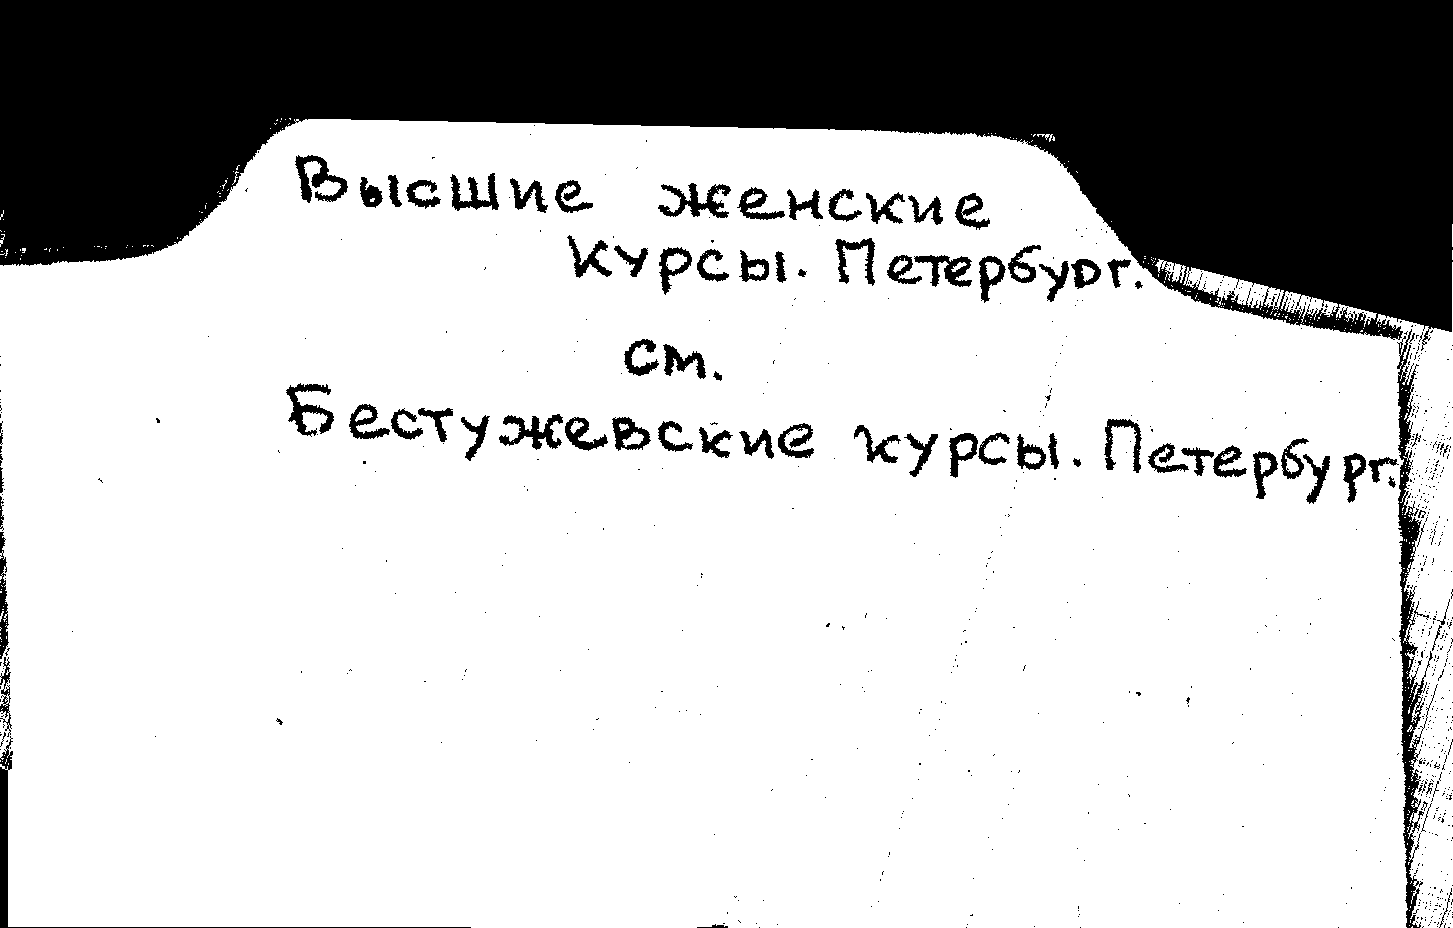 Высшие женские
курсы. Петербург.
см.
Бестужевские курсы. Петербург.